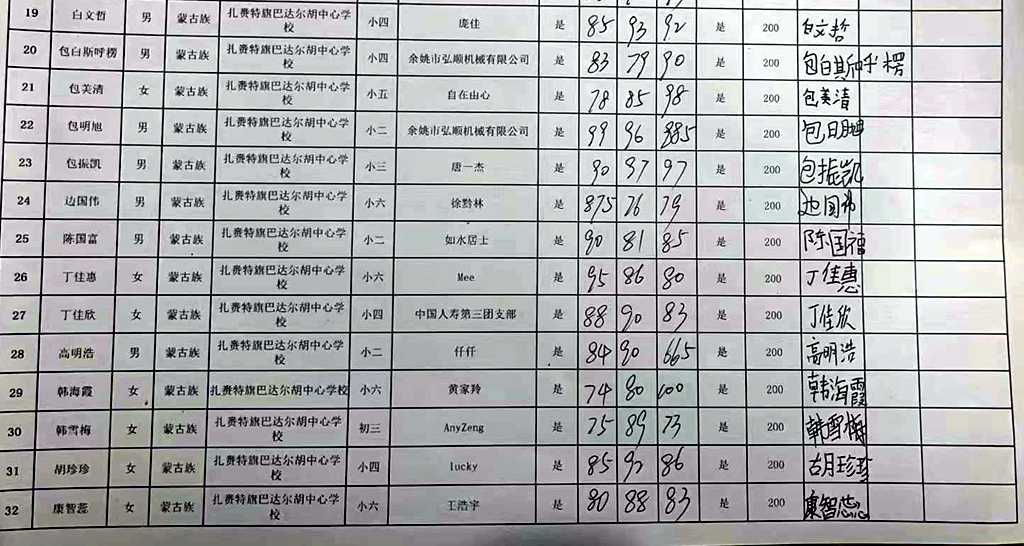 19 白文哲 男 蒙古族 扎赉特旗巴达尔胡中心学校 小四 庞佳 是 85 93 92 是 200 白文哲
20 包白斯呼楞 男 蒙古族 扎赉特旗巴达尔胡中心学校 小四 余姚市弘顺机械有限公司 是 83 79 90 是 200 包白斯呼楞
21 包美清 女 蒙古族 扎赉特旗巴达尔胡中心学校 小五 自在由心 是 78 85 98 是 200 包美清
22 包明旭 男 蒙古族 扎赉特旗巴达尔胡中心学校 小二 余姚市弘顺机械有限公司 是 99 96 885 是 200
23 包振凯 男 蒙古族 扎赉特旗巴达尔胡中心学校 小三 唐一杰 是 90 97 97 是 200 包振凯
24 边国伟 男 蒙古族 扎赉特旗巴达尔胡中心学校 小六 徐黔林 是 875 76 79 是 200 边国伟
25 陈国富 男 蒙古族 扎赉特旗巴达尔胡中心学校 小二 如水居士 是 90 81 85 是 200 陈国福
26 丁佳惠 女 蒙古族 扎赉特旗巴达尔胡中心学校 小六 Mee 是 95 86 80 是 200 丁佳惠
27 丁佳欣 女 蒙古族 扎赉特旗巴达尔胡中心学校 小四 中国人寿第三团支部 是 88 90 83 是 200 丁佳欣
28 高明浩 男 蒙古族 扎赉特旗巴达尔胡中心学校 小二 仟仟 是 84 90 665 是 200 高明浩
29 韩海霞 女 蒙古族 扎赉特旗巴达尔胡中心学校 小六 黄家羚 是 74 80 100 是 200 韩海霞
30 韩雪梅 女 蒙古族 扎赉特旗巴达尔胡中心学校 初三 AnyZeng 是 75 89 73 是 200 韩雪梅
31 胡珍珍 女 蒙古族 扎赉特旗巴达尔胡中心学校 小四 lucky 是 85 92 86 是 200 胡珍珍
32 康智蕊 女 蒙古族 扎赉特旗巴达尔胡中心学校 小六 王浩宇 是 80 88 83 是 200 康智蕊